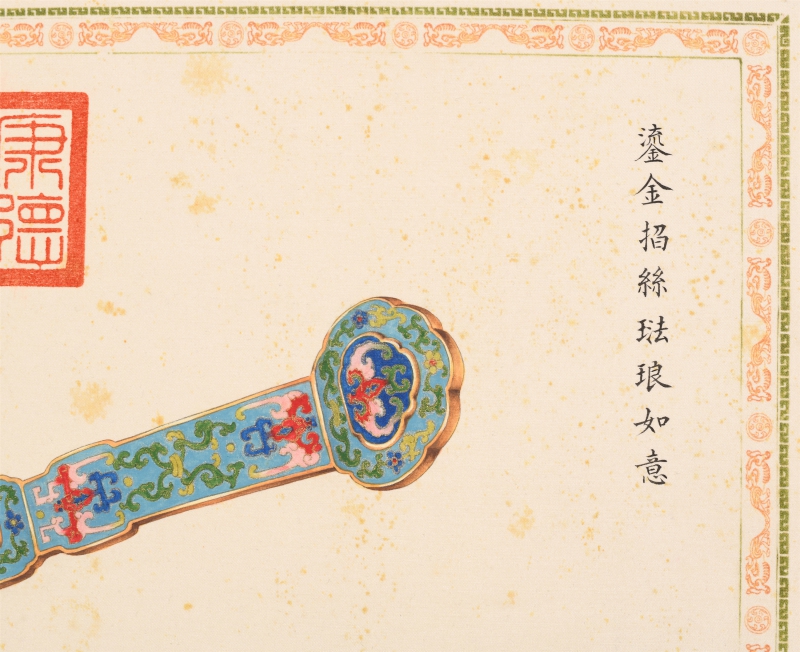 鎏金掐絲珐琅如意
康德